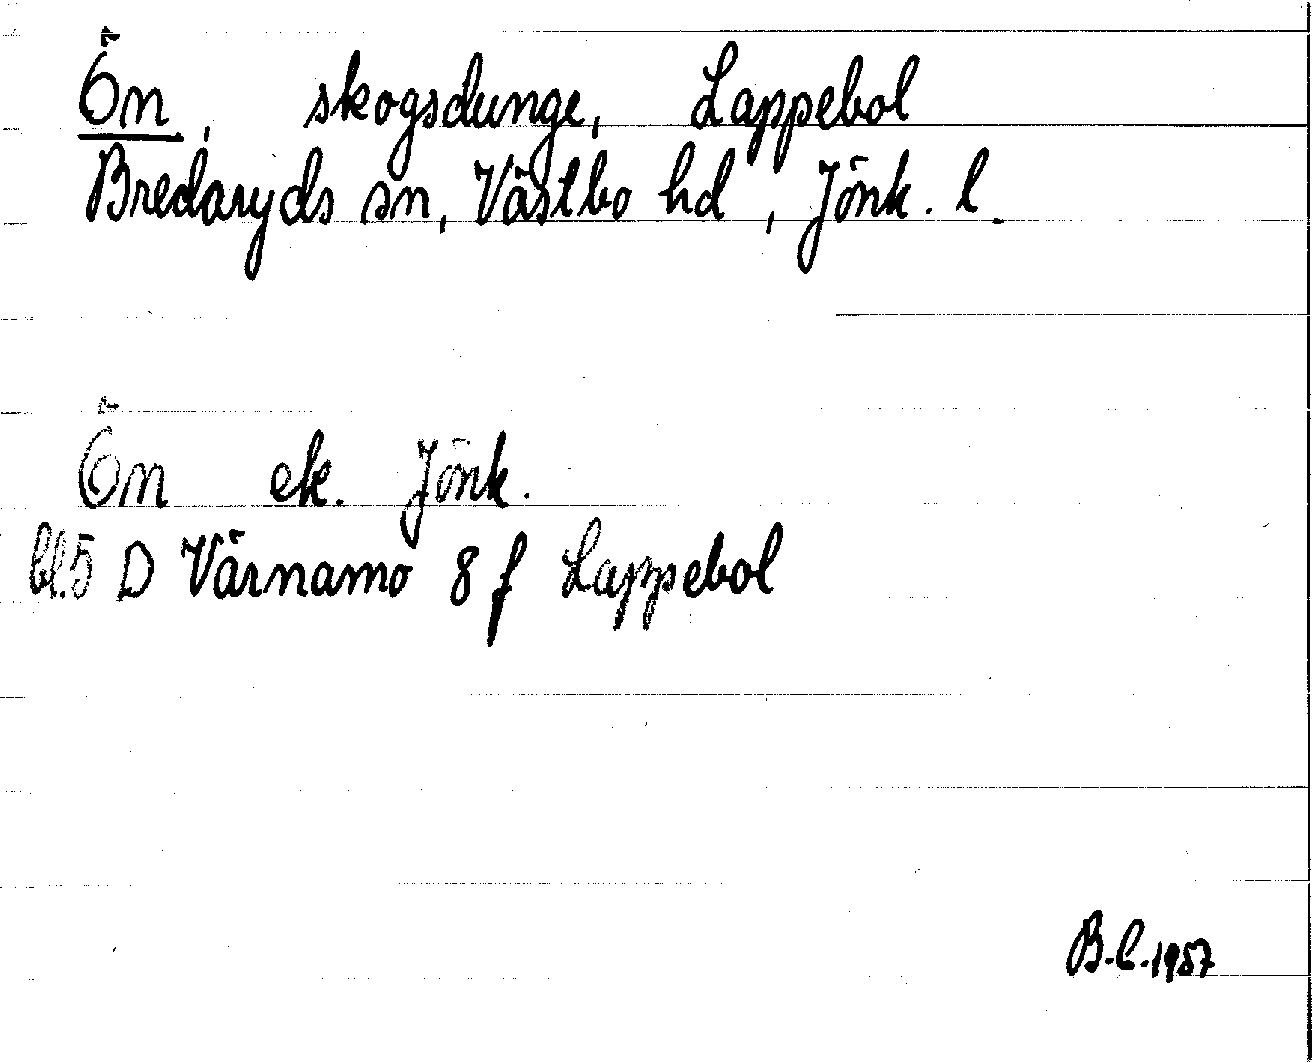 Ön, skogsdunge, Lappebol
Bredaryds sn, Västbo hd, Jönk. l.
Ön ek. Jönk.
bl.5 D Värnamo 8 f Lappebol
B.C. 1957